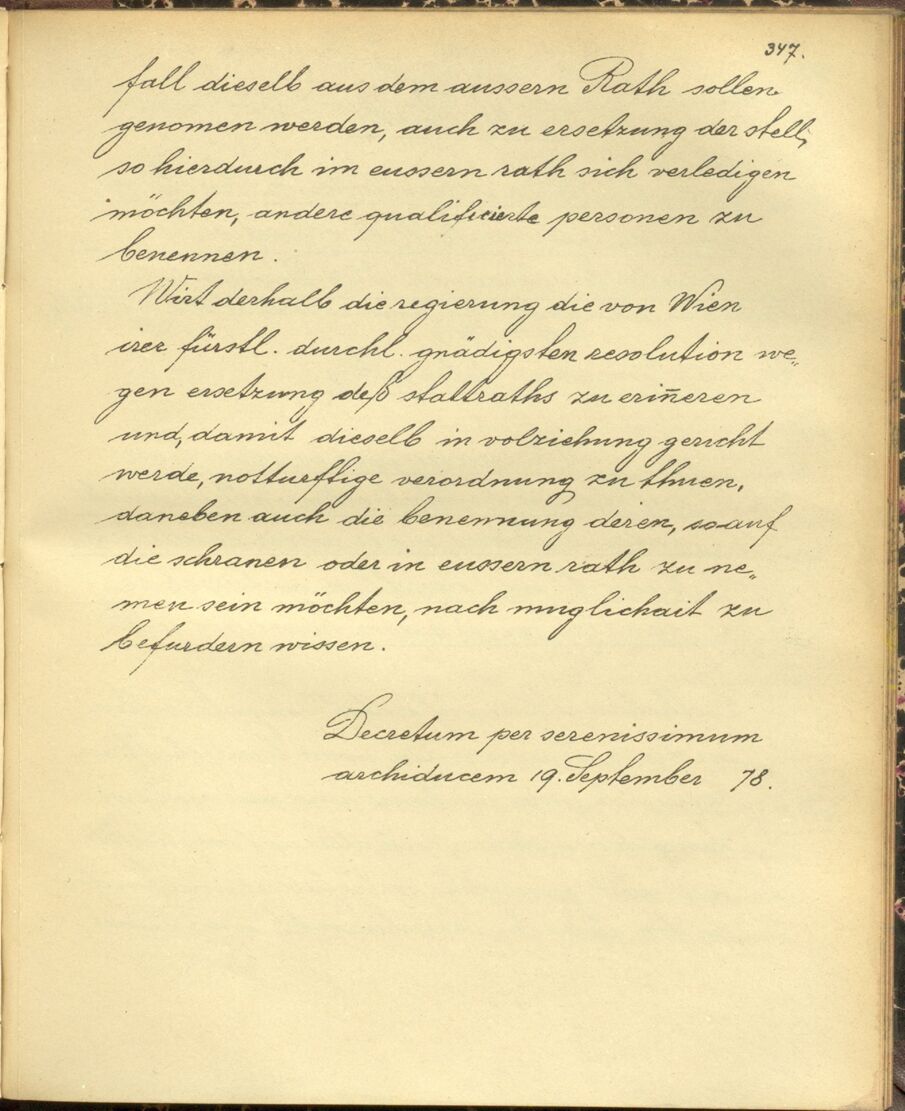 347.
fall dieselb aus dem aussern Rath sollen
genomen werden, auch zu ersetzung der stell,
so hierdurch im eussern rath sich verledigen
möchten, andere qualificierte personen zu
benennen.
Wirt derhalb die regierung die von Wien
irer fürstl. durchl. gnädigsten resolution we„
gen ersetzung deß stattraths zu erin̄eren
und, damit dieselb in volziehung gericht
werde, notturfftige verordnung zu thuen,
daneben auch die benennung deren, so auf
die schranen oder in eussern rath zu ne„
men sein möchten, nach muglichait zu
befurdern wissen.
Decretum per serenissimum
archiducem 19. September 78.